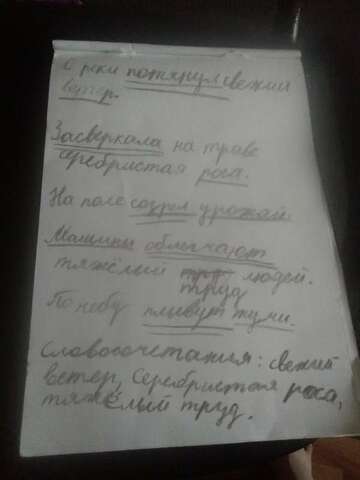 С реки потянул свежий
ветер.
Засверкала на траве
серебристая роса.
На поле созрел урожай.
Машины облегчают
тяжёлый труд людей.
труд
По небу плывут тучи.
Словосочетания: свежий
ветер, серебристая роса,
тяжёлый труд.